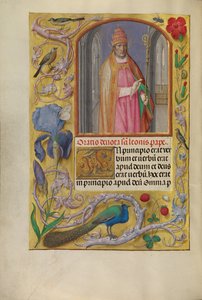 Oratio devota sci leonis pape.
IN principio erat ver
bum et verbū erat
apud deum et deus
erat verbū. Hoc erat
in principio apud deū Omnia p